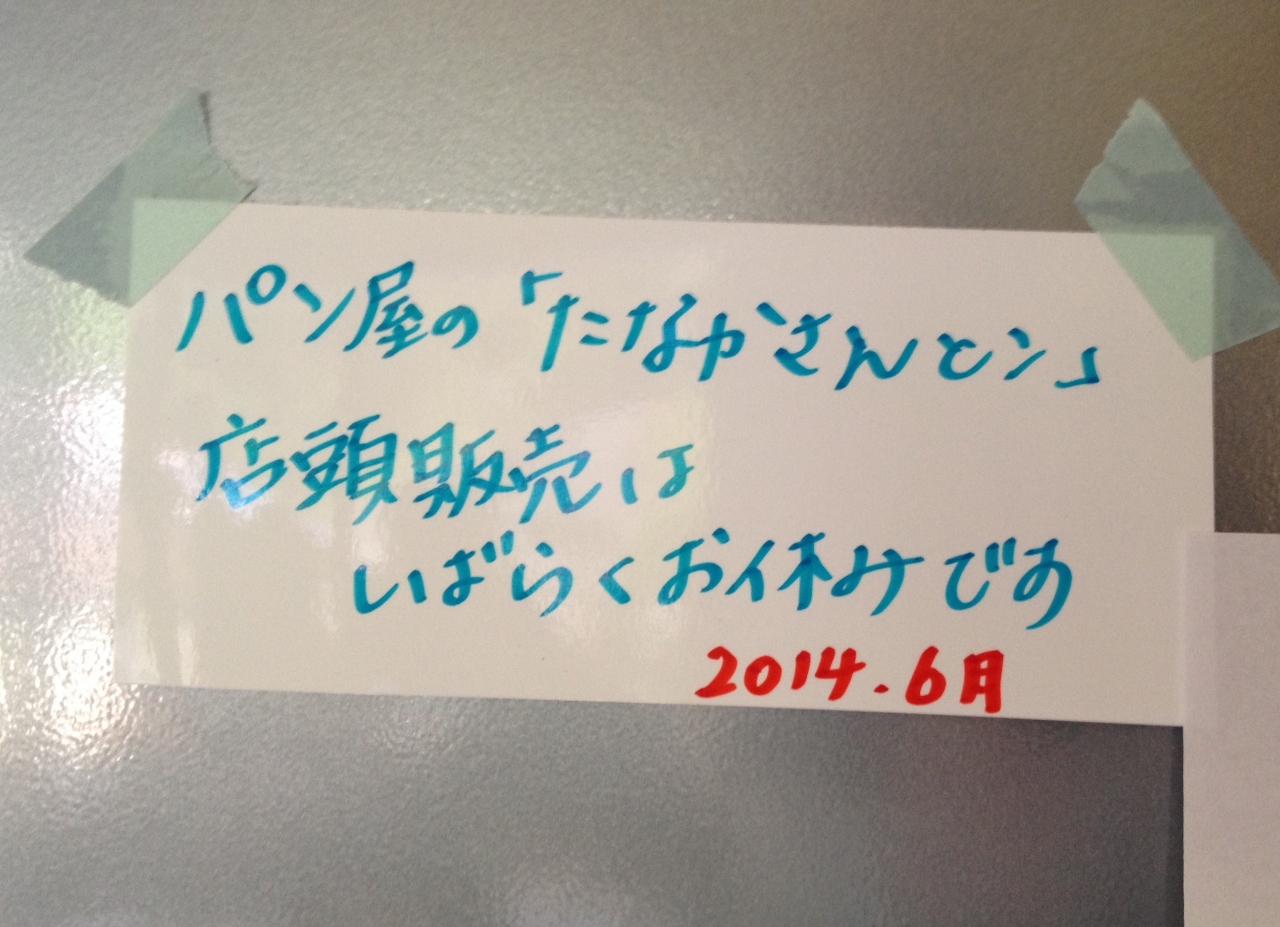 パン屋の「たなかさんとン」
店頭販売は
しばらくお休みです
2014.6月